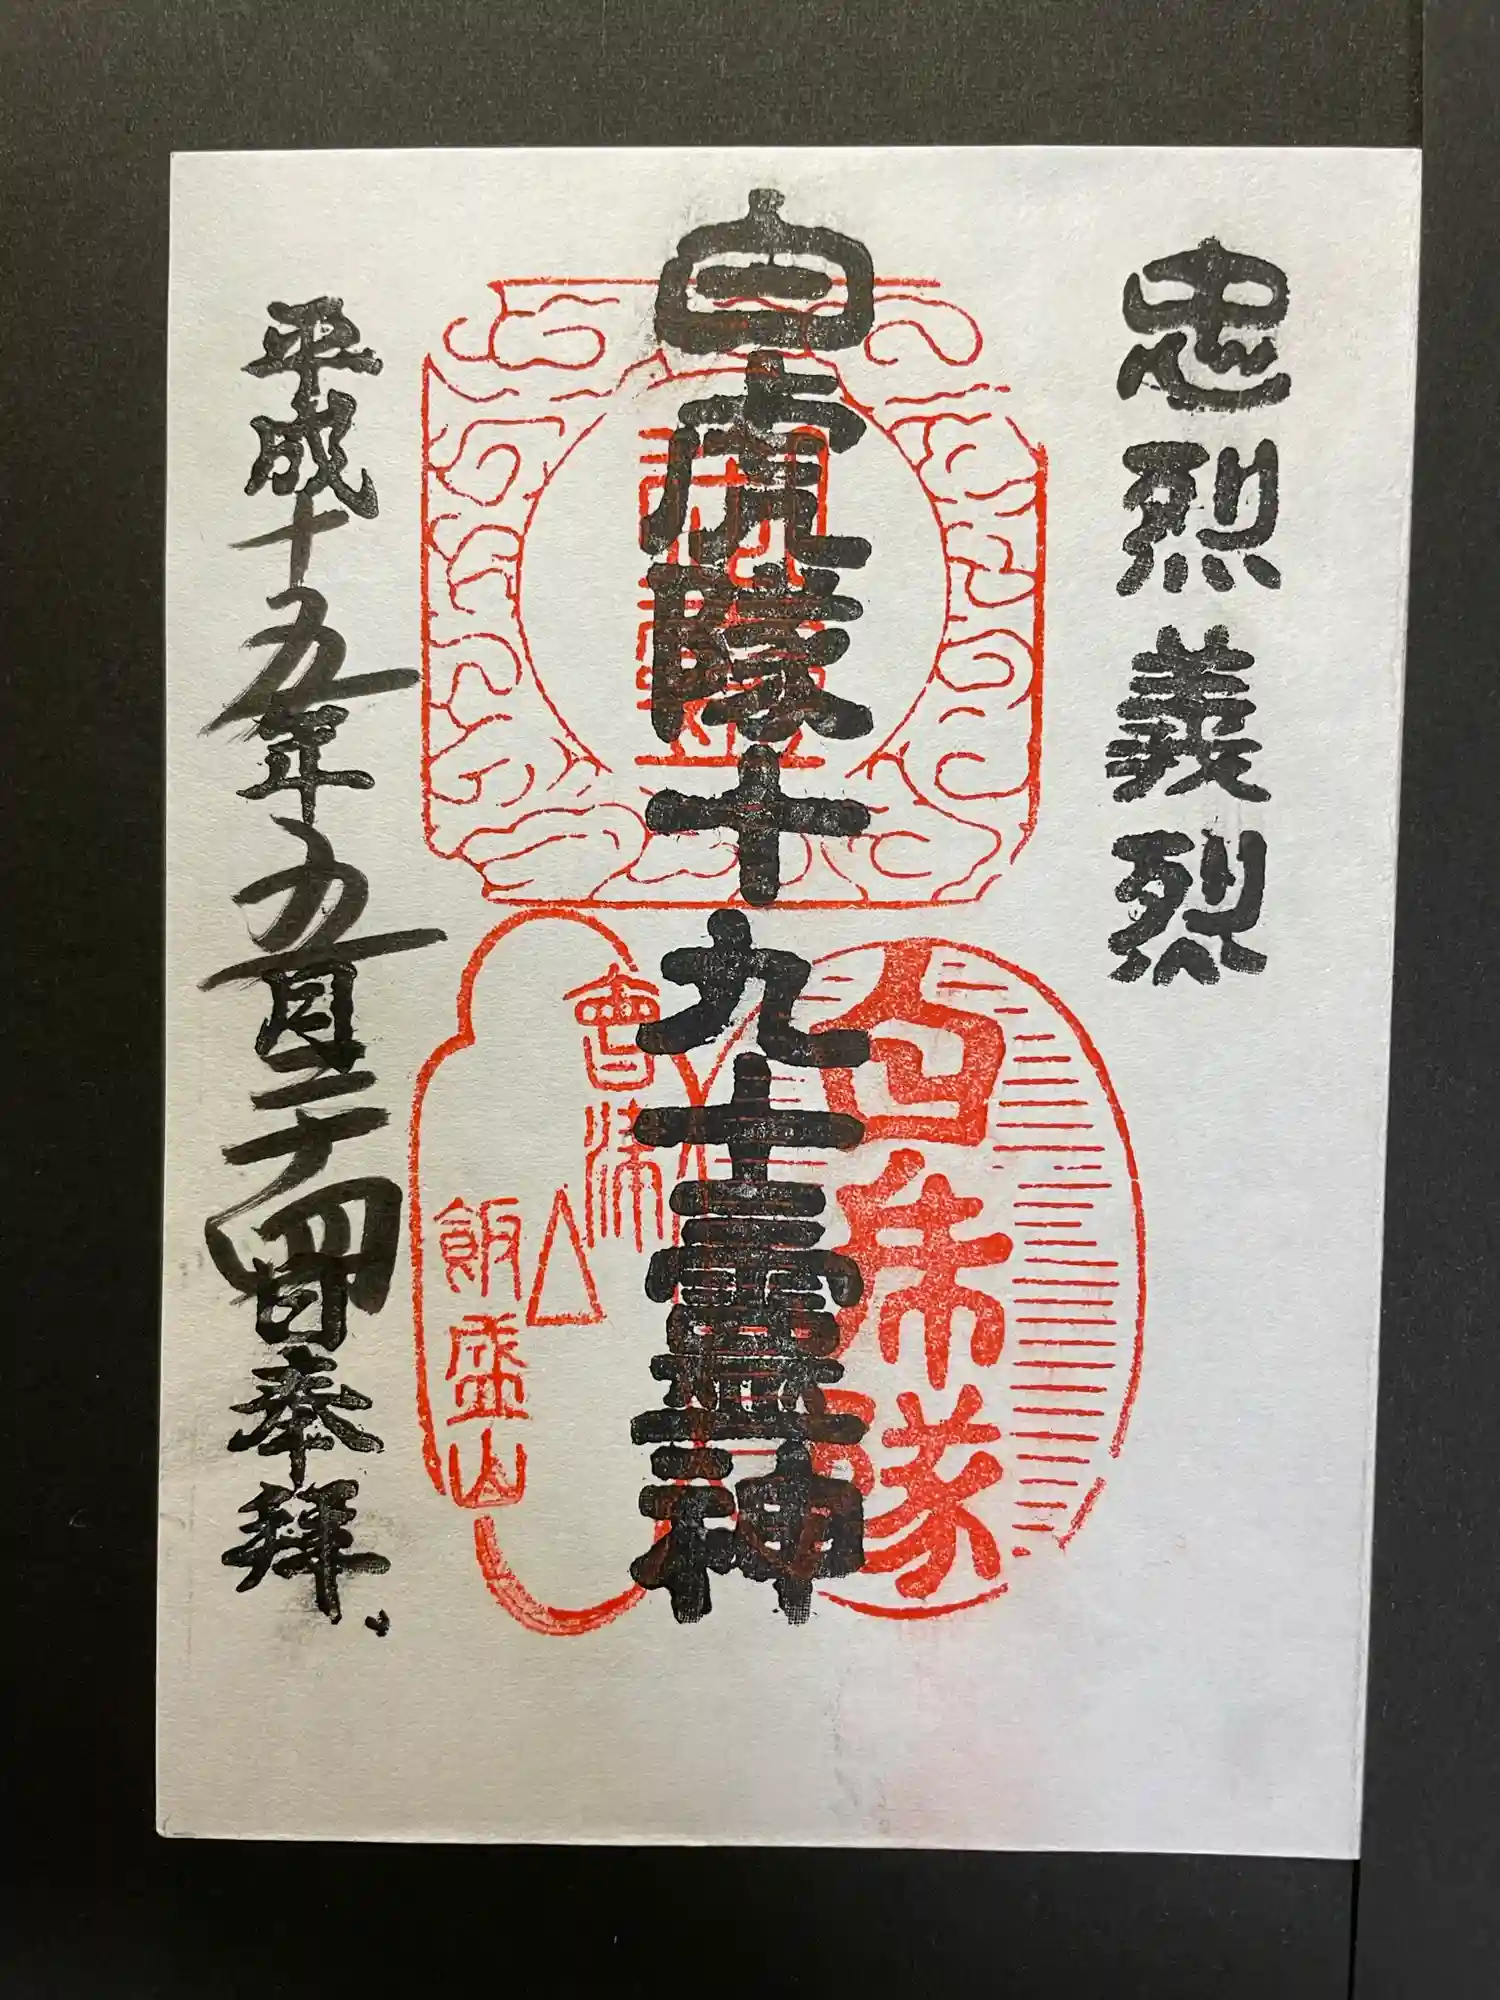 忠烈義烈
白虎隊十九士霊神
白虎隊
會津
飯盛山
平成十五年九月二十四日奉拜